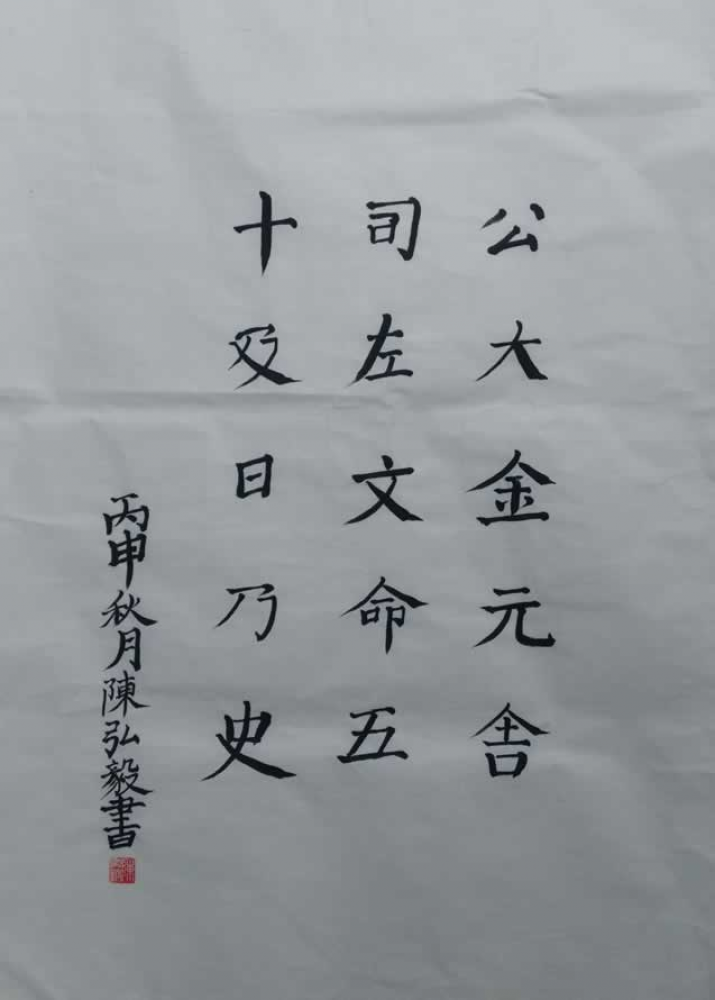 公大金元舍
司左文命五
十及日乃史
丙申秋月陳弘毅書